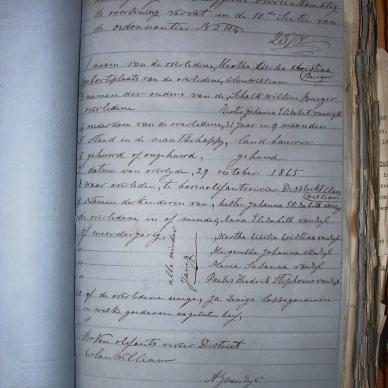 de voorziening vervat in de 10de Sectie van
de ordonnantie No 104
2578
naam van de overledene, Martha Cecilia Christina
Burger
geboortplaats van de overledene, Clanwilliam
namen der ouders van de, Schalk Willem Burger
overledene Hester Johanna Elizabet van wyk
4 ouderdom van de overledene, 31 jaar en 9 maanden
5 Stand in de maatschappy, land bouwer
6 gehuwd of ongehuwd, gehuwd
datum van overlyden, 29 october 1865
8 waar overleden, te Distrikt Clan
William
9 Namen der kinderen van, hester Johanna Elizabeth van wyk
de overledene en of mindej Anna Elizabeth van wyk
of meerderjarig, Martha Cecilia Cristina van wyk
Margaretha Johanna van wyk
Maria Susanna van wyk
Paulus Hendrik Stephanus van wyk
alle minder
jarig
of de overledene eenige, ja eenige losse goederen
en welke goederen nagelaten heeft,
olifants rivier District
Clanwilliam